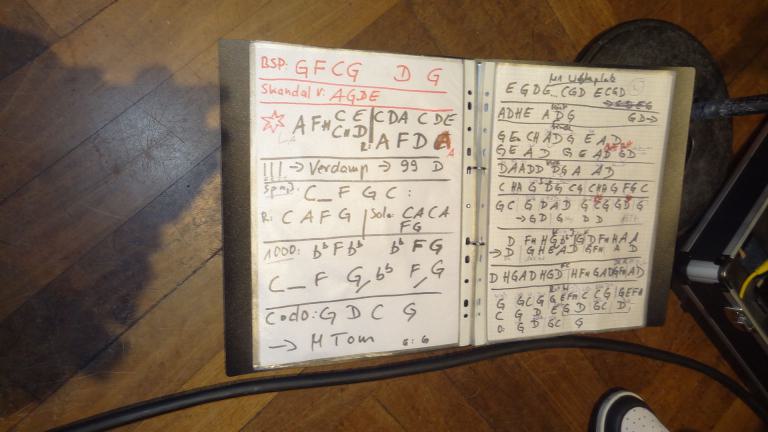 BSP: G F C G D G
Skandal r: A G D E
A F# C E | C D A C D E
C H D
R: A F D A
A
||| → Verdamp → 99 D
Spaß: C _ F G C :
R: C A F G | Solo: C A C A
F G
1000: b♭ F b♭ b♭ F G
C _ F G, b♭ F, G
Codo: G D C G
→ M Tom G: G
E G D G... C G D E C G D
A D H E A D G
G D →
G E C H A D G E A D
G E A D G E A D G D
D A A D D D G A A D
C H A G D G C G C H A G F G C
G C G D A D G C G G D G
→ G D G D D
D F# H G b♭ G D F# H A A
→ D G H E A D G F# A D
D H G A D H G D H F# G A D G F# A D
G G C G G E F# C C G G E F#
C G D E G D G C D
O: G D G C G